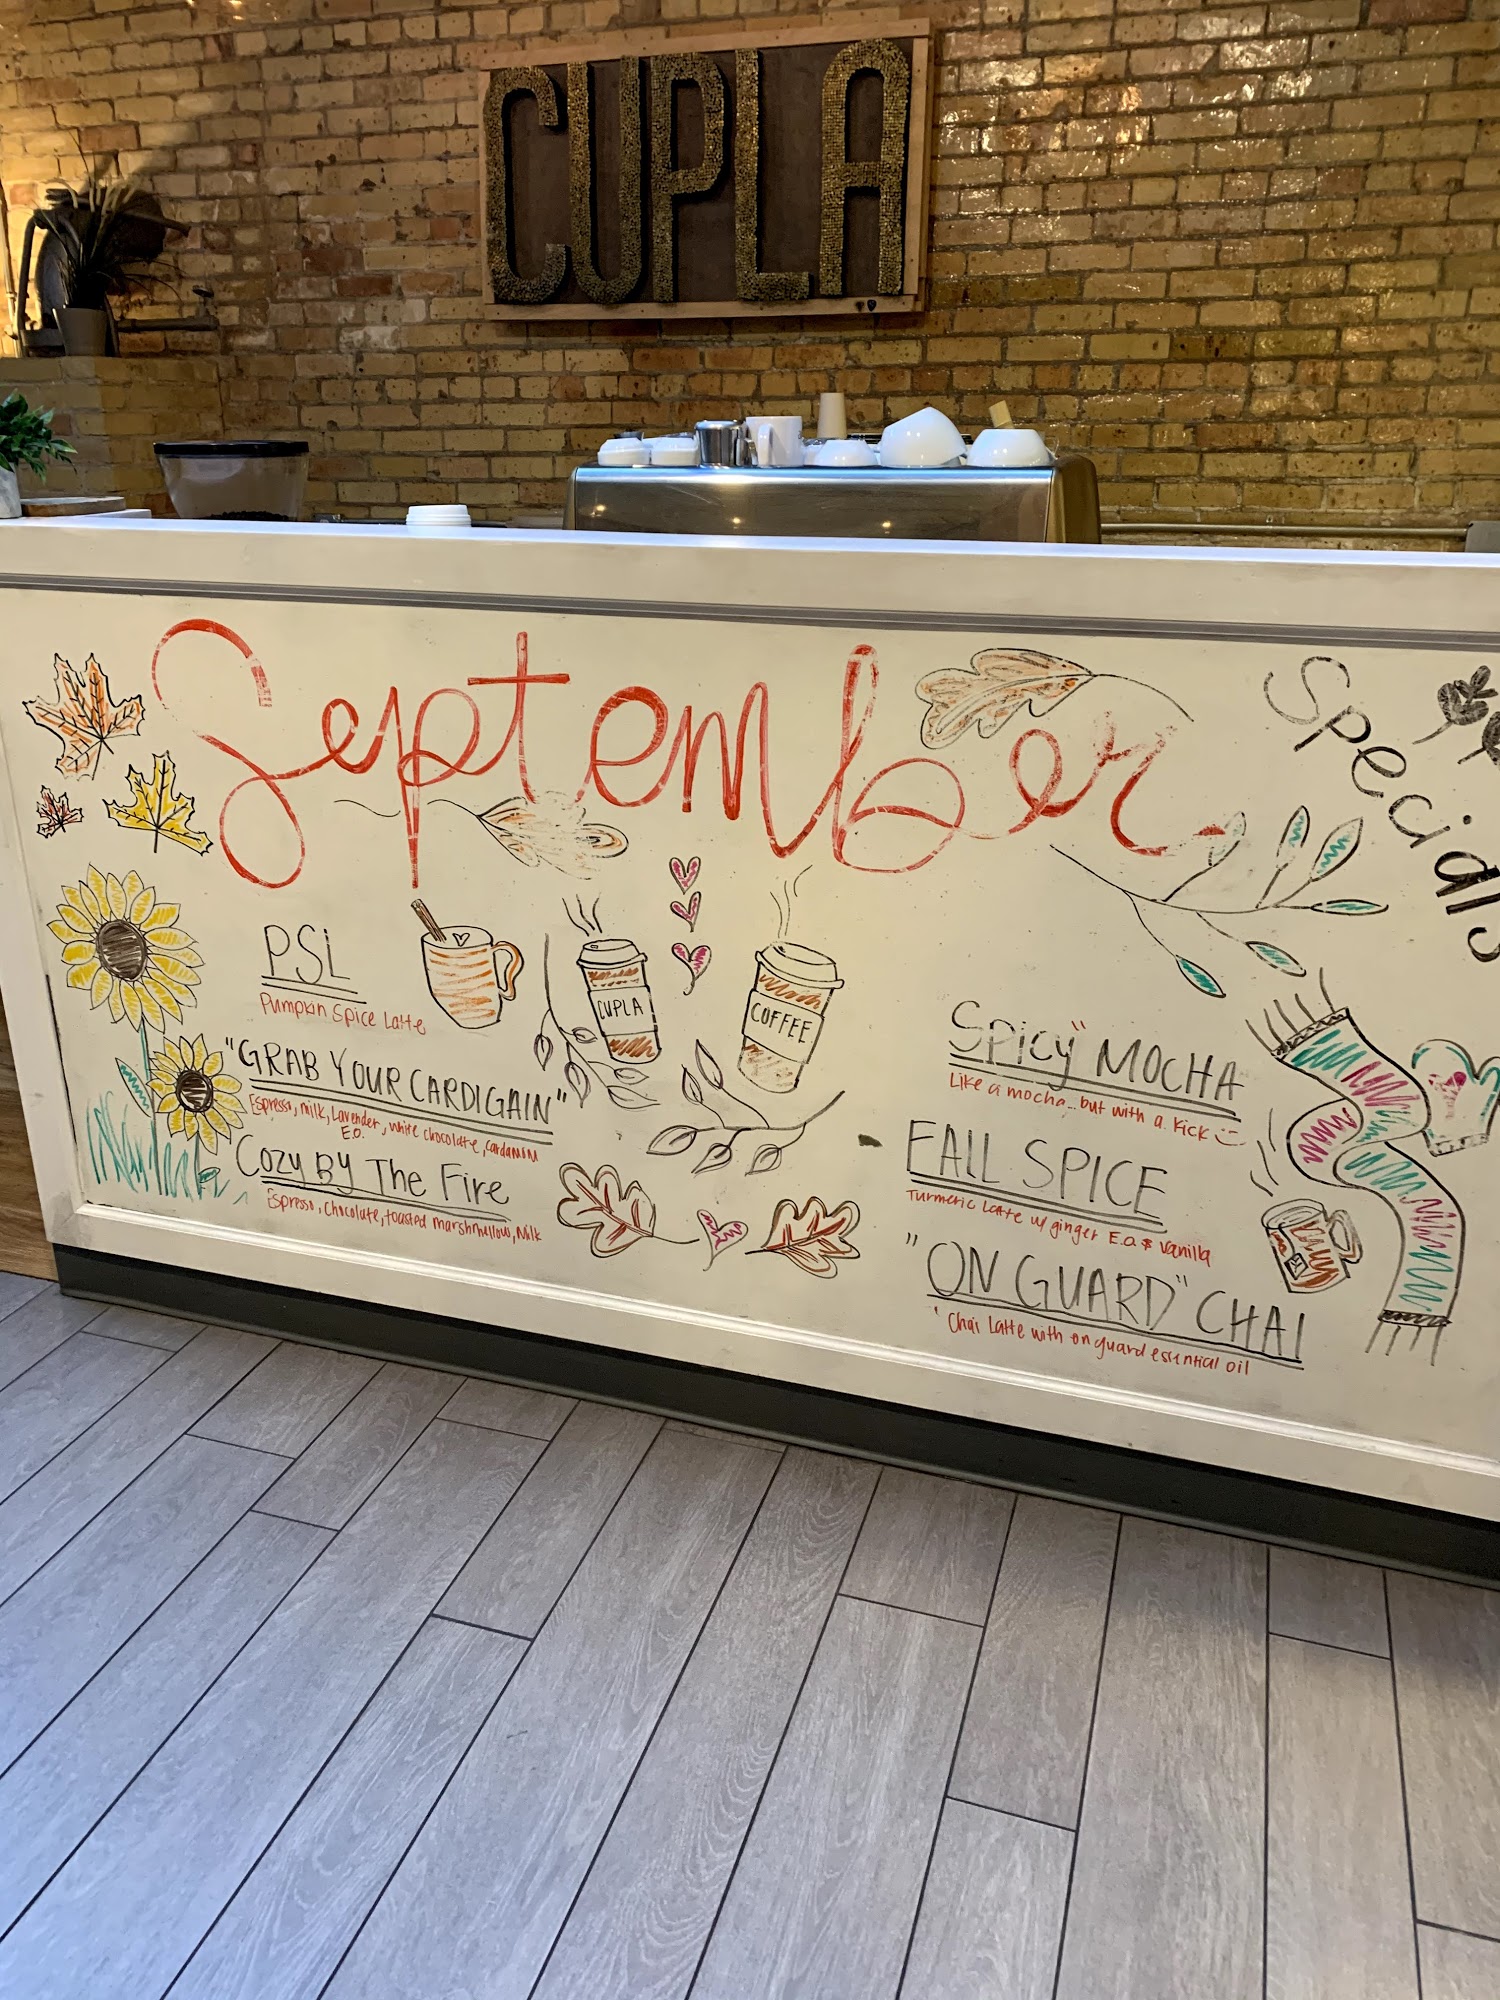 CUPLA
September
Specials
PSL
Pumpkin Spice Latte
"GRAB YOUR CARDIGAIN"
Espresso, milk, Lavender, white chocolate, cardamom
E.O.
Cozy By The Fire
Espresso, Chocolate, toasted marshmallow, Milk
CUPLA
COFFEE
Spicy" MOCHA
Like a mocha... but with a kick
FALL SPICE
Turmeric Latte w/ ginger E.O. & vanilla
"ON GUARD" CHAI
Chai Latte with on guard essential oil